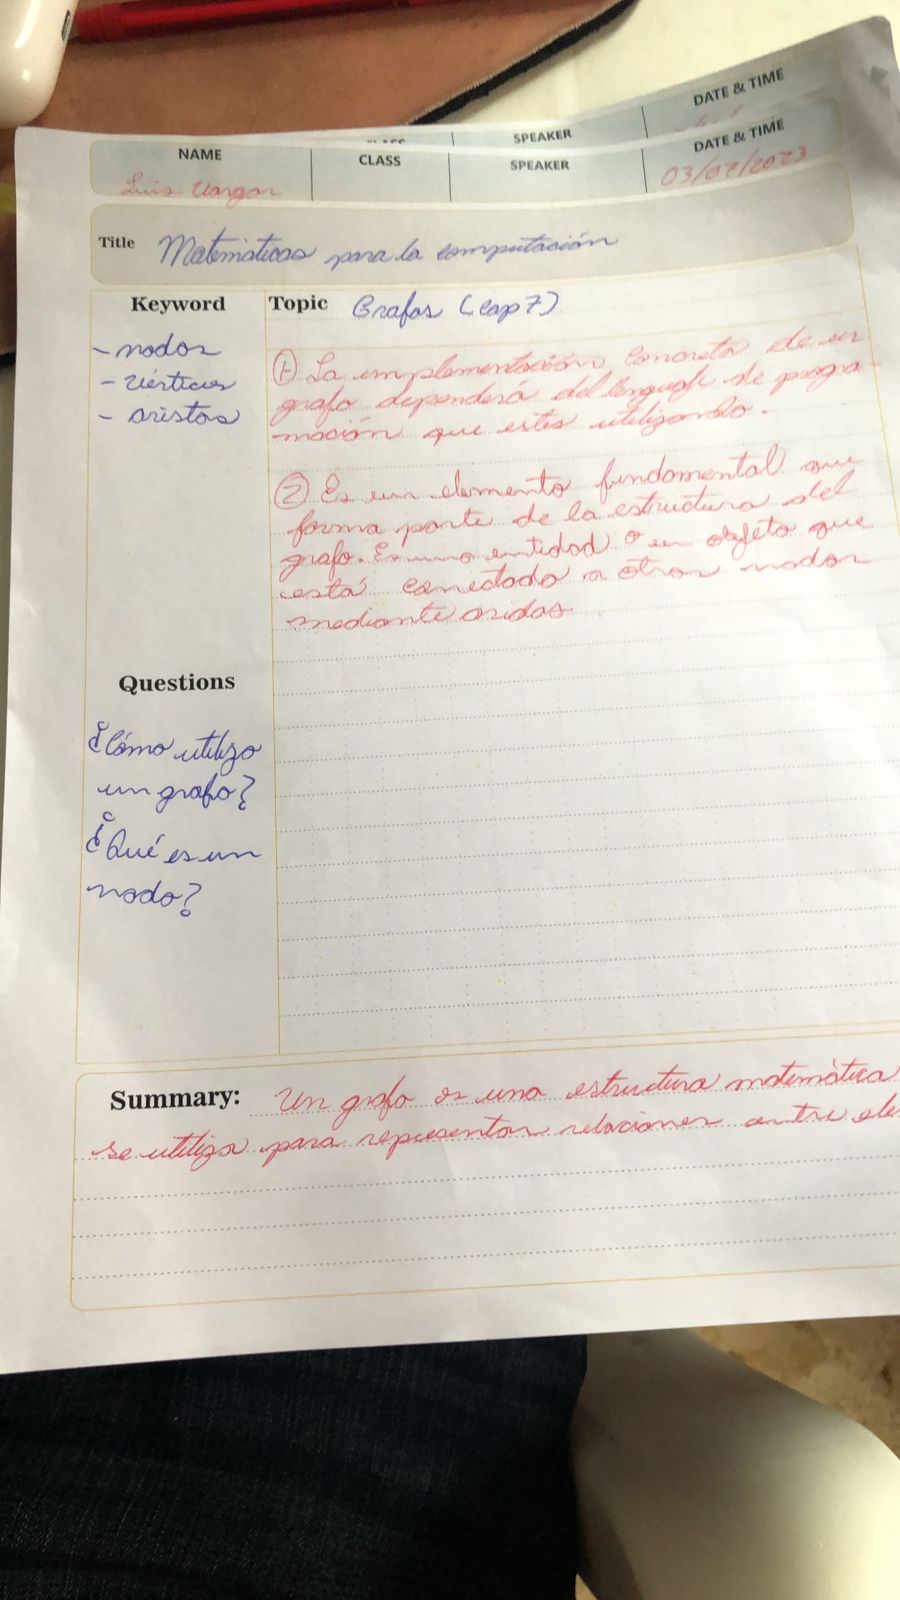 DATE & TIME
SPEAKER
NAME
CLASS
SPEAKER
DATE & TIME
Luis Vargas
03/07/2023
Title Matemáticas para la computación
Keyword
- nodos
- vértices
- aristas
Topic Grafos (cap 7)
① La implementación concreta de un
grafo dependerá del lenguaje de progra-
mación que estes utilizando.
② Es un elemento fundamental que
forma parte de la estructura del
grafo. Es una entidad o un objeto que
está conectado a otros nodos
mediante aridas
Questions
¿Cómo utilizo
un grafo?
¿Qué es un
nodo?
Summary: Un grafo es una estructura matemática
se utiliza para representar relaciones entre ele